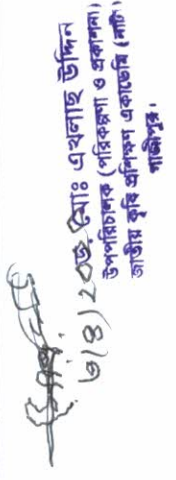 ৬/৪/২০২
ড. মোঃ এখলাছ উদ্দিন
উপপরিচালক (পরিকল্পনা ও প্রকাশনা)
জাতীয় কৃষি প্রশিক্ষণ একাডেমি (নাটা)
গাজীপুর।